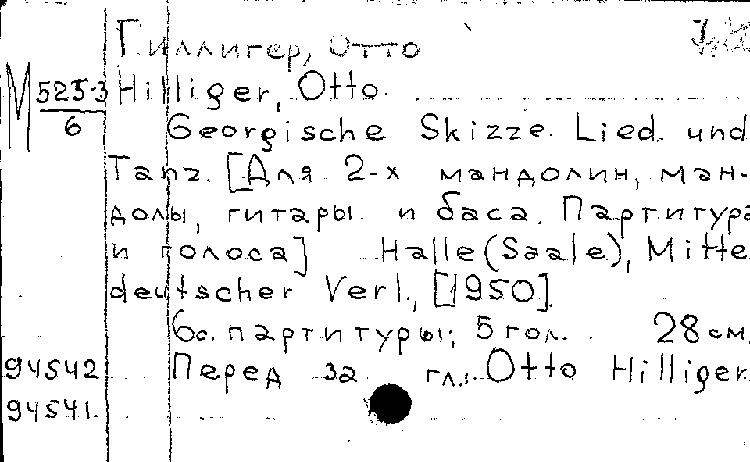 Гиллигер, Отто
М 525-3/6
Hilliger, Otto.
Georgische Skizze. Lied und
Tanz. [Для 2-х мандолин, ман-
долы, гитары и баса. Партитура
и голоса] Halle (Saale), Mittel
deutscher Verl., [1950].
6 с. партитуры; 5 гол. 28 см.
94542 Перед загл.: Otto Hilliger
94541.